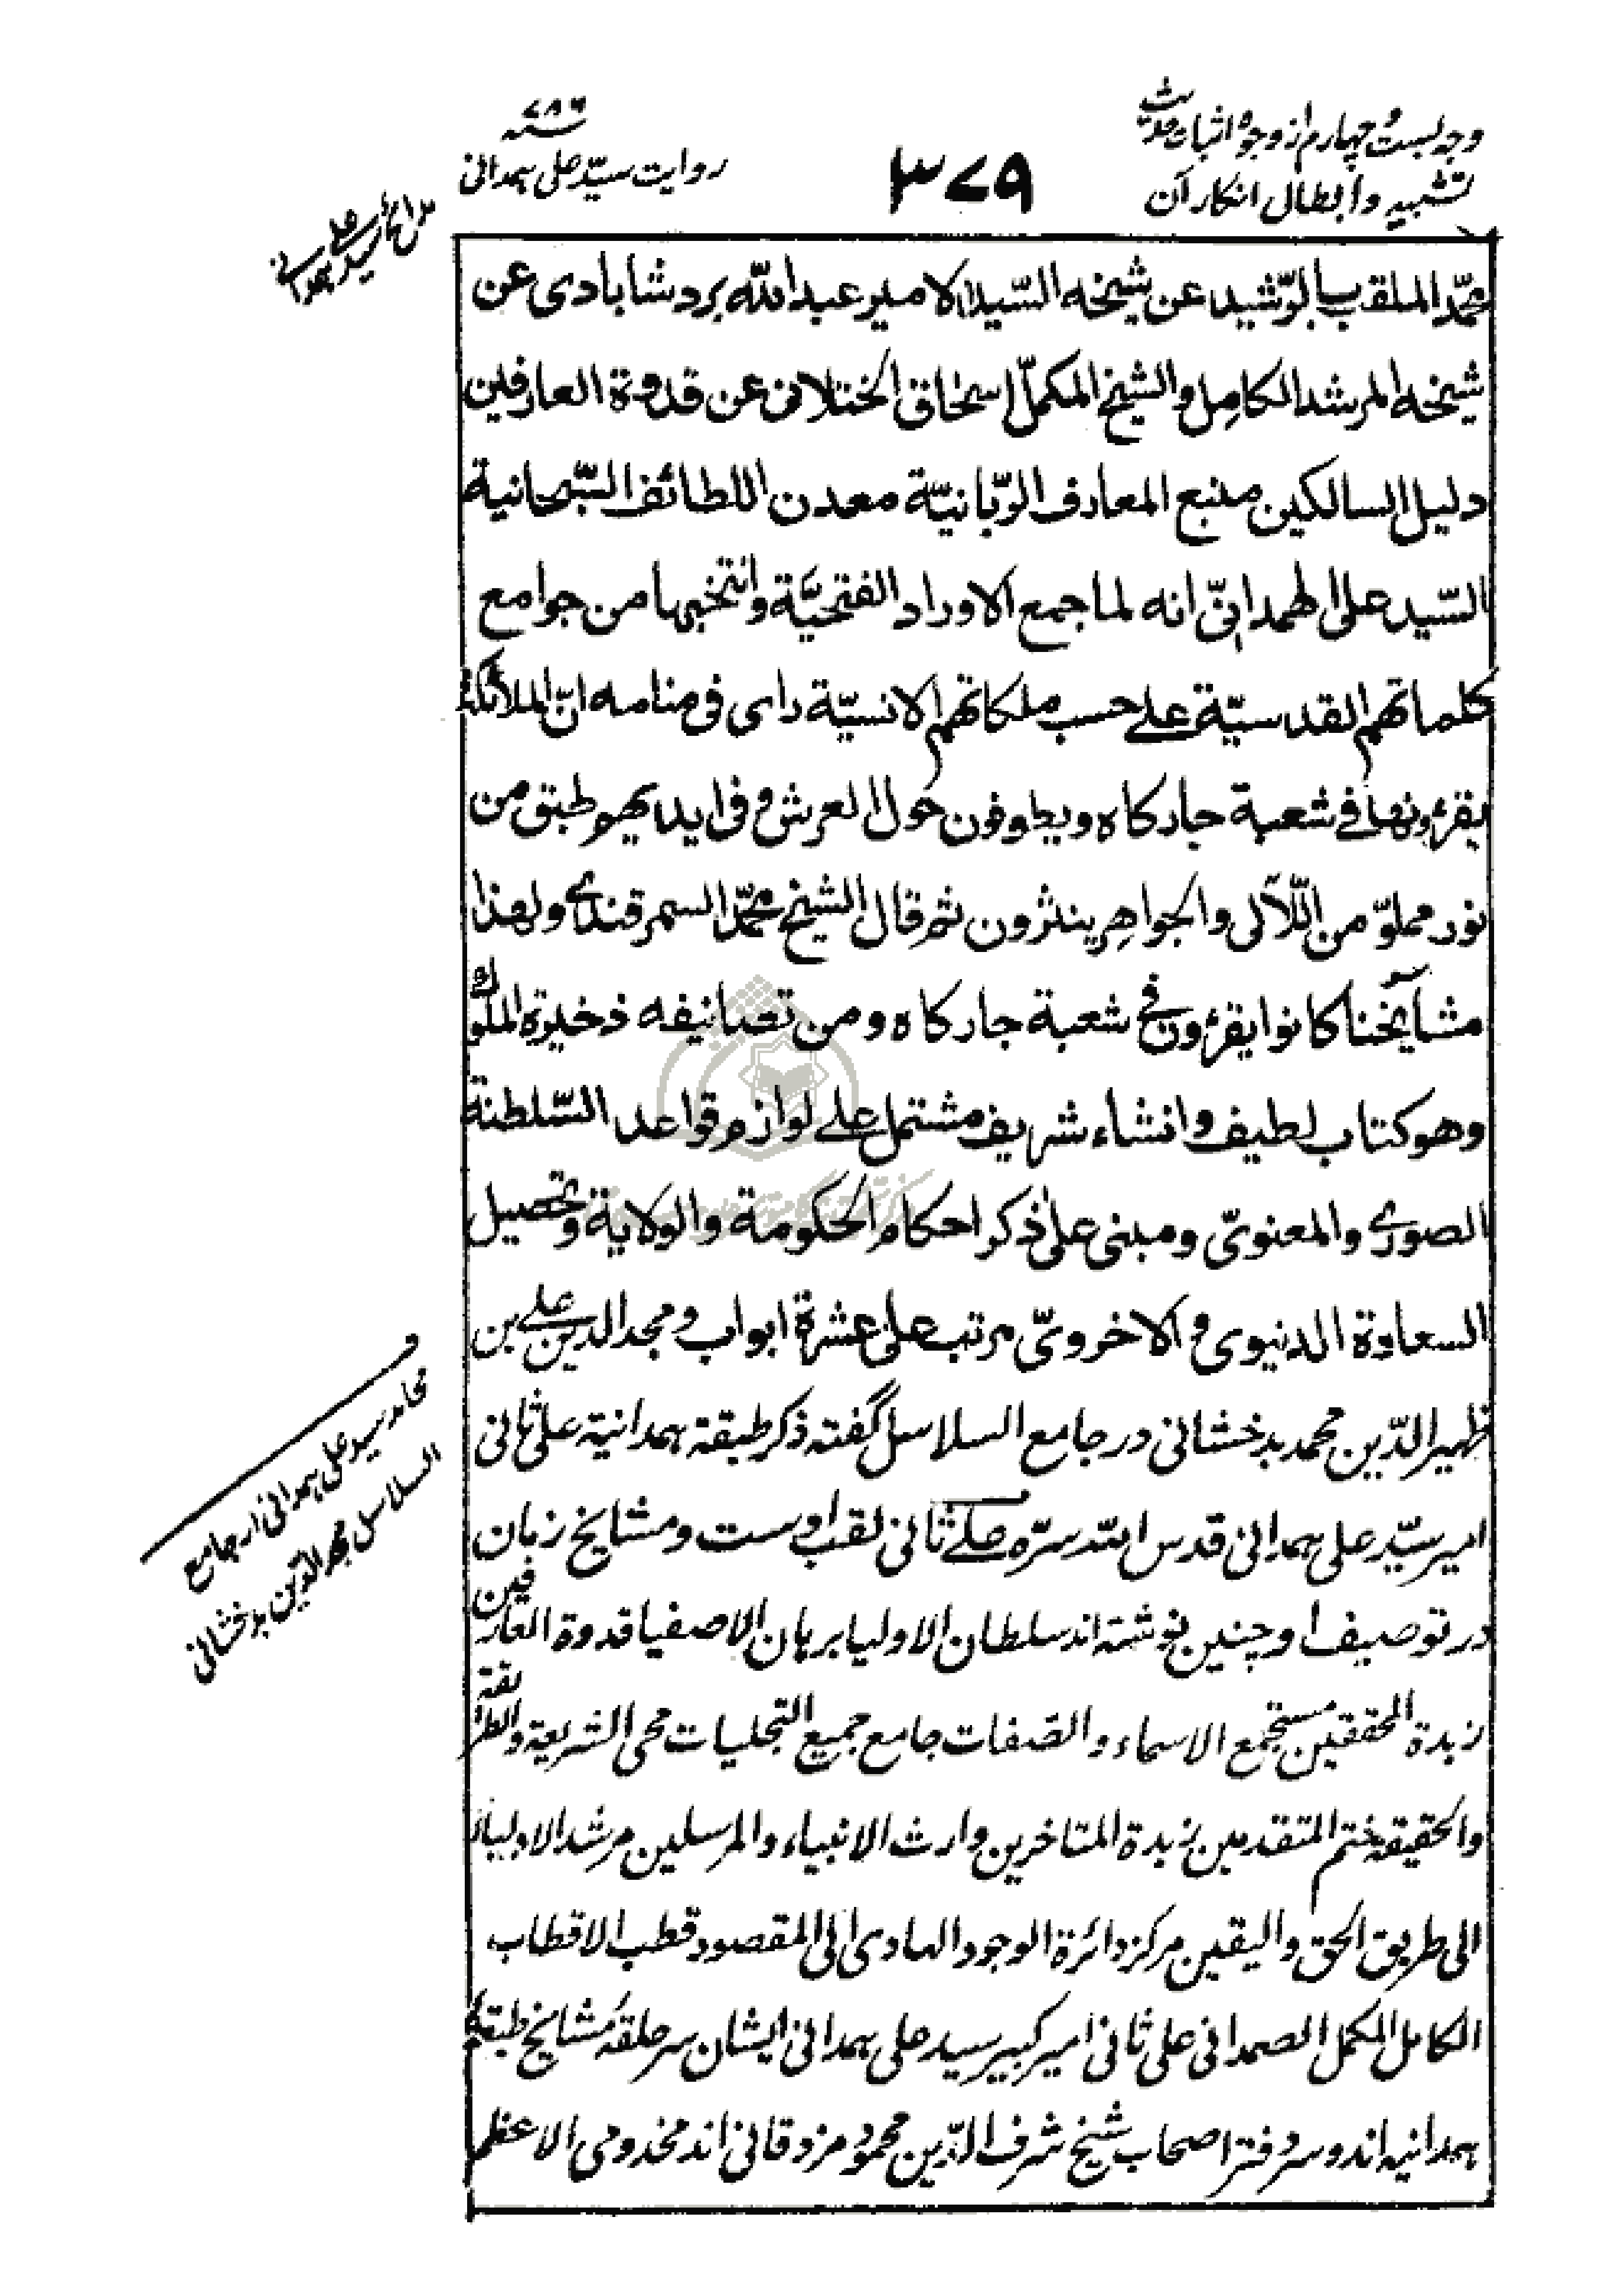 وجه بست و چهارم از وجوه اثبات حدیث
تشبیه و ابطال انکار آن
۳۷۹
۷۸۶ سنه
روایت سیّد علی همدانی
سید علی همدانی
محمّد الملقب بالرّشید عن شیخه السّید الامیر عبد اللّه بردشابادی عن
شیخه المرشد الکامِل والشیخ المکمّل اسحاق الختلانی عن قدوة العارفین
دلیل السالکین منبع المعارف الرّبّانیّة معدن اللطائف السّبحانیة
السّید علی الهمدانیّ انه لما جمع الاوراد الفتحیَّة وانتخبها من جوامع
کلماتهم القدسیّة علے حسب ملکاتهم الانسیّة رای فی منامه انّ الملائکة
یقرءونها فے شعبة جارکاه ویطوفون حول العرش وفی ایدیهم طبق من
نور مملوّ من اللّآلی والجواهِر ینثرون ثم قال الشیخ محمّد السمرقندے ولهذا
مشآیخنا کانوا یقرءون فی شعبة جارکاه ومن تصانیفه ذخیرة الملوک
وهو کتاب لطیف وانشاء شریف مشتمل علے لوازم قواعد السّلطنة
الصورے والمعنویّ ومبنی علیٰ ذکر احکام الحکومة والولایة وتحصیل
السعادة الدنیوی و الاخرویّ مرتب علیٰ عشرة ابواب و مجد الدین علے بن
ظهیر الدّین محمد بدخشانی در جامع السلاسل گفته ذکر طبقة همدانیة علی ثانی
امیر سیّد علی همدانی قدس اللّه سرّه علے ثانی لقب اوست و مشایخ زمان
در توصیف او چنین نوشته اند سلطان الاولیا برهان الاصفیا قدوة العارفین
زبدة المحققین مستجمع الاسماء والصفات جامع جمیع التجلیات محی الشریعة والطریقة
والحقیقة ختم المتقدمین زبدة المتاخرین وارث الانبیاء والمرسلین مرشد الاولیاء
الی طریق الحق والیقین مرکز دائرة الوجود الهادی الی المقصود قطب الاقطاب
الکامل المکمل الصمدانی علی ثانی امیر کبیر سید علی همدانی ایشان سر حلقهٔ مشایخ طبقهٔ
همدانیه اند و سر دفتر اصحاب شیخ شرف الدّین محمود مزدقانی اند مخدومی الاعظم
محامد سید علی همدانی از جامع
السلاسل مجد الدّین بدخشانی